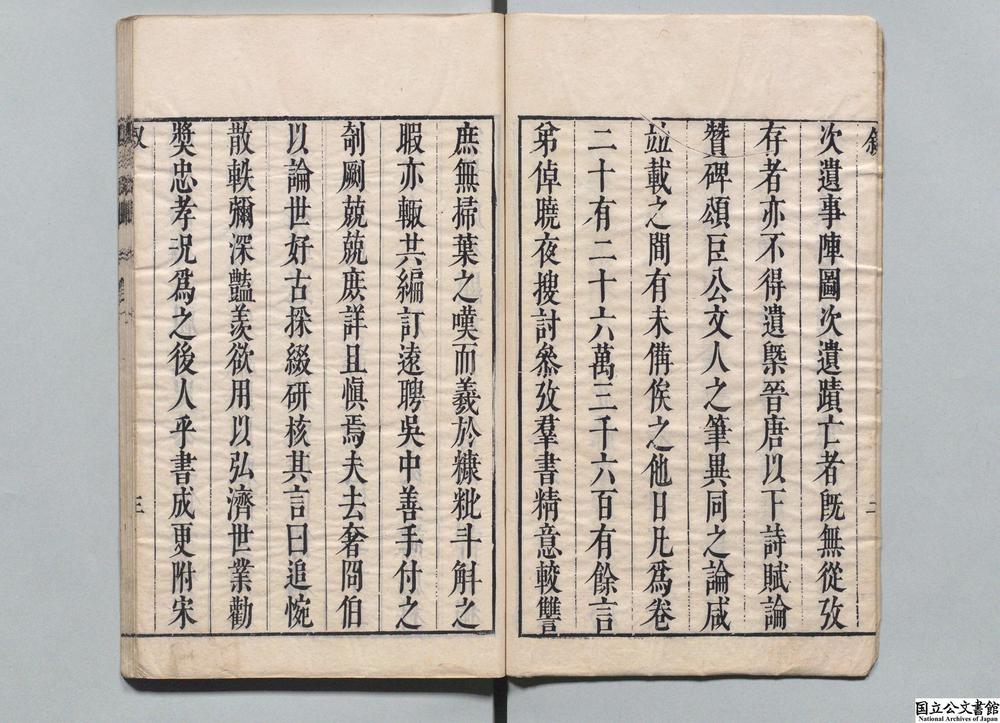 次遺事陣圖次遺蹟亡者旣無從攷
存者亦不得遺槩晉唐以下詩賦論
贊碑頌巨公文人之筆異同之論咸
竝載之間有未備俟之他日凡爲卷
二十有二十六萬三千六百有餘言
弟倬曉夜搜討叅攷羣書精意較讐
庶無掃葉之嘆而羲於糠粃斗斛之
暇亦輙共編訂遠聘吳中善手付之
剞劂兢兢庶詳且愼焉夫去奢冏伯
以論世好古採綴研核其言曰追惋
散軼彌深豔羡欲用以弘濟世業勸
奬忠孝况爲之後人乎書成更附宋
二
三
国立公文書館
National Archives of Japan